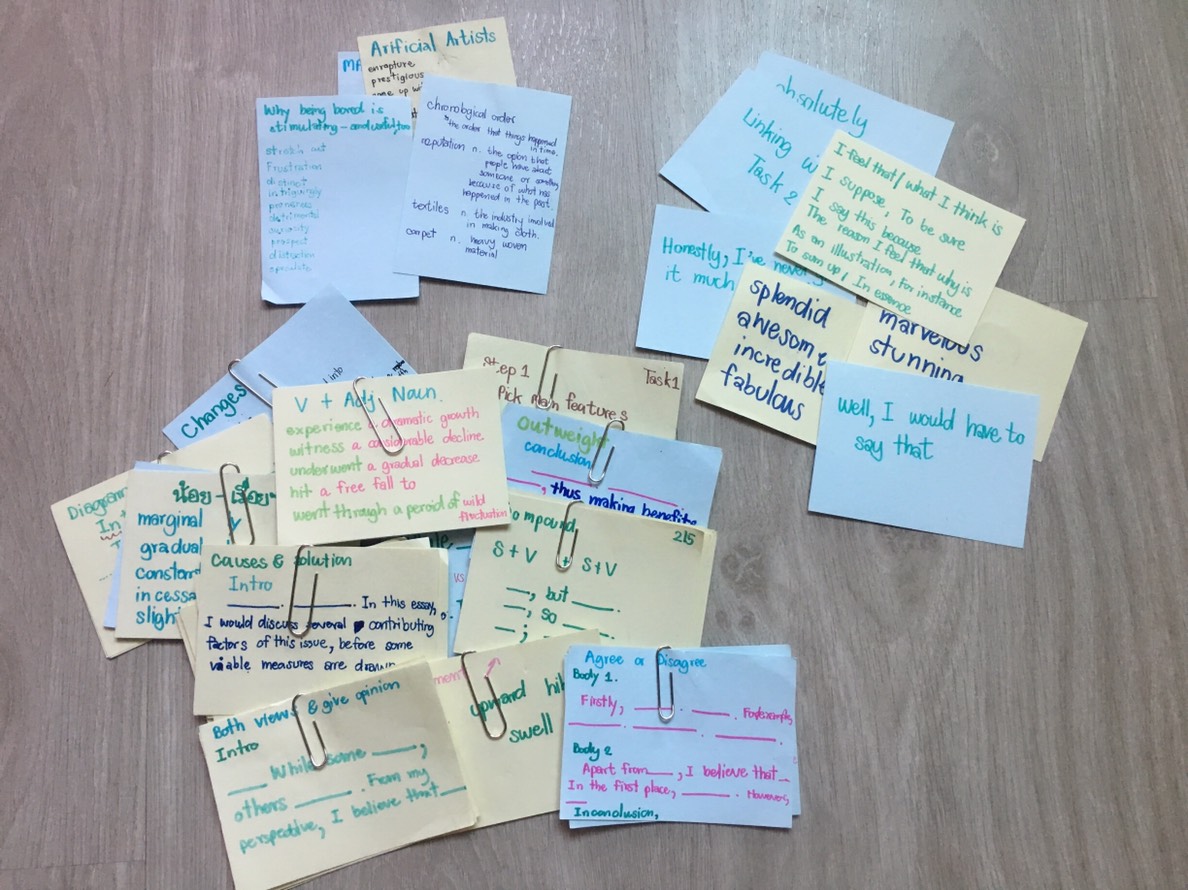 Arificial Artists
enrapture
prestigious
Why being bored is
stimulating - and useful, too
stretch out
Frustration
distinct
intriguingly
detrimental
curiosity
prospect
distraction
speculate
chronological order
the order that things happened
in time.
reputation n. the opion that
people have about
someone or something
because of what has
happened in the past.
textiles n. the industry involved
in making cloth.
carpet n. heavy woven
material
absolutely
Linking
Task 2
I feel that / what I think is
I suppose, To be sure
I say this because
The reason I feel that why is
As an illustration, for instance
To sum up / In essence
Honestly, I've never
it much
splendid
awesome
incredible
fabulous
marvelous
stunning
well, I would have to
say that
Changes
into
V + Adj. Noun.
experience a dramatic growth
witness a considerable decline
underwent a gradual decrease
hit a free fall to
went through a peroid of wild
fluctuation
Step 1 Task 1
Pick main features
Outweigh
conclusion
, thus making benefits
Diagram
In
น้อย - เรื่อย
marginal
gradual
constan
in cessa
slight
Compound 2/5
S + V + S + V
__, but __.
__, so __.
__;
vs
Causes & solution
Intro
____. ____. In this essay,
I would discuss several contributing
factors of this issue, before some
viable measures are drawn
Both views & give opinion
Intro
__ While some __,
others ____. From my
perspective, I believe that __
upward
swell
Agree or Disagree
Body 1.
Firstly, ____. ____. For example,
____. ____. ____.
Body 2
Apart from __, I believe that __
In the first place, ____. However,
__
In conclusion,